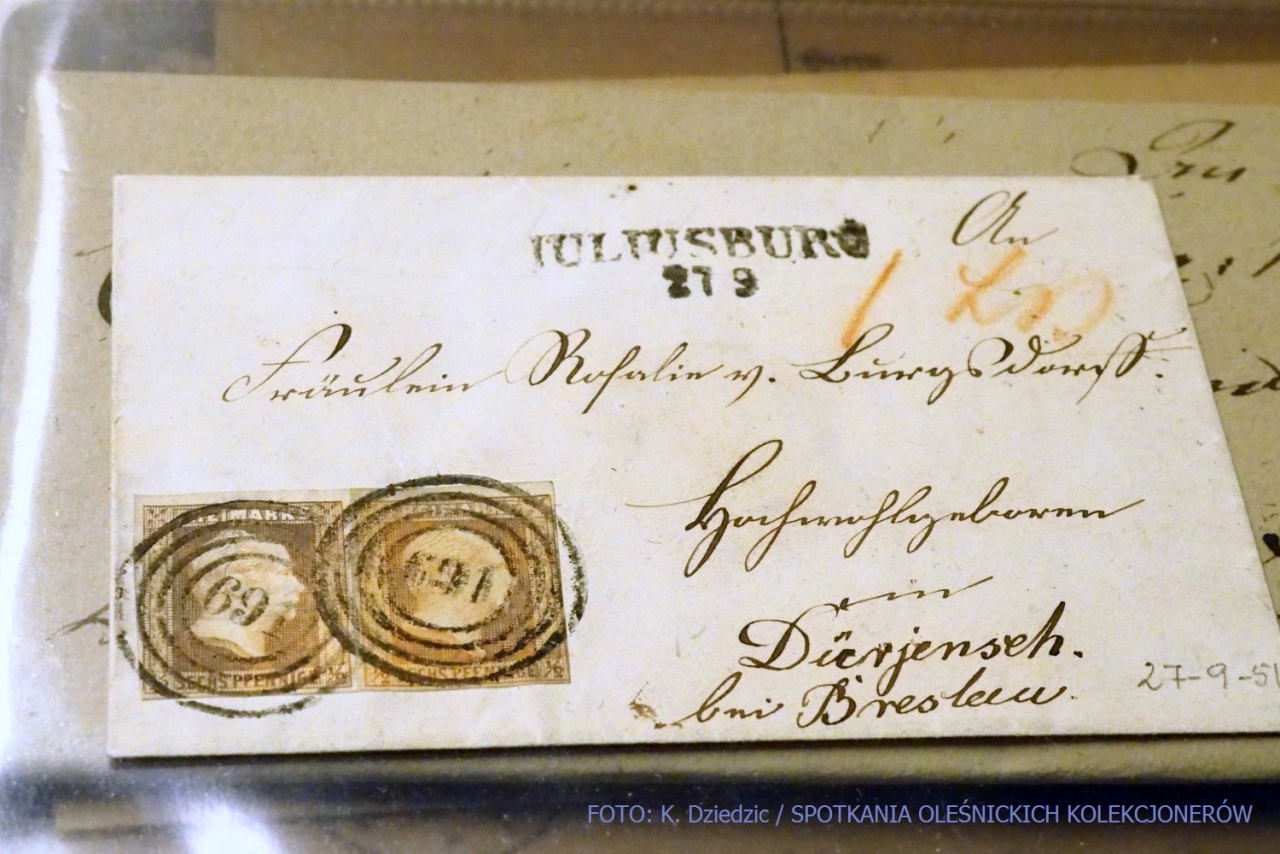 An
JULIUSBURG
27 9
Fräulein Rosalie v. Burgsdorff.
Hochwohlgeboren
in
Dürrjensch.
bei Breslau.
27-9-51
FREIMARKE
691
SECHS PFENNIGE
691
SECHS PFENNIGE ½
FOTO: K. Dziedzic / SPOTKANIA OLEŚNICKICH KOLEKCJONERÓW